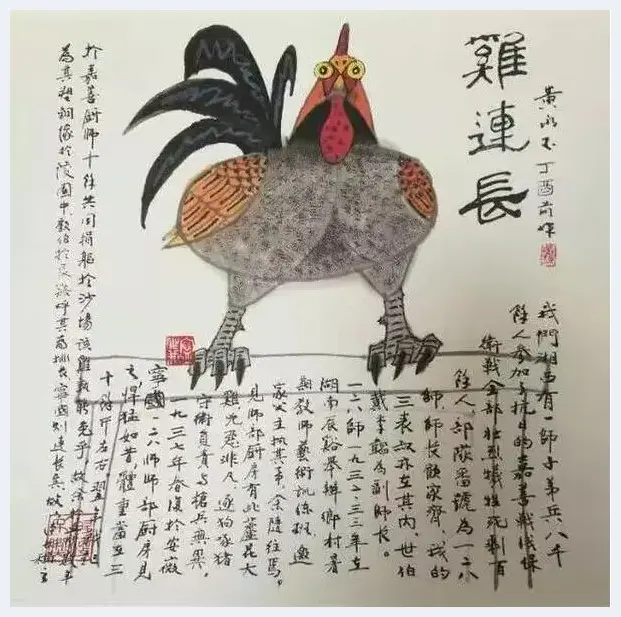 雞連長
黃永玉丁酉前作
我們湘西有一師子弟兵八千
餘人參加了抗日的嘉善戰役保
衛戰全部壯烈犧牲祇剩百
餘人部隊番號為一二八
師師長顧家齊,我的
三表叔亦在其內,世伯
戴季韜為副師長。
一二八師一九三二三三年在
湖南辰谿舉辦鄉村暑
期教師藝術訓練班,邀
家父主執其事,余隨往焉,
見師部廚房有此蘆花大
雞兇惡非凡,逐狗啄豬
守衛自責與槍兵無異。
一九三七年余復於安徽
寧國一二八師師部廚房見
之,悍猛如昔,體重當在三
十餘斤左右翌年
於嘉善廚師十餘共同捐軀於沙場該雞孰能免乎故余
為其塑銅像於陵園中 呼其為排長寧國則連長矣故